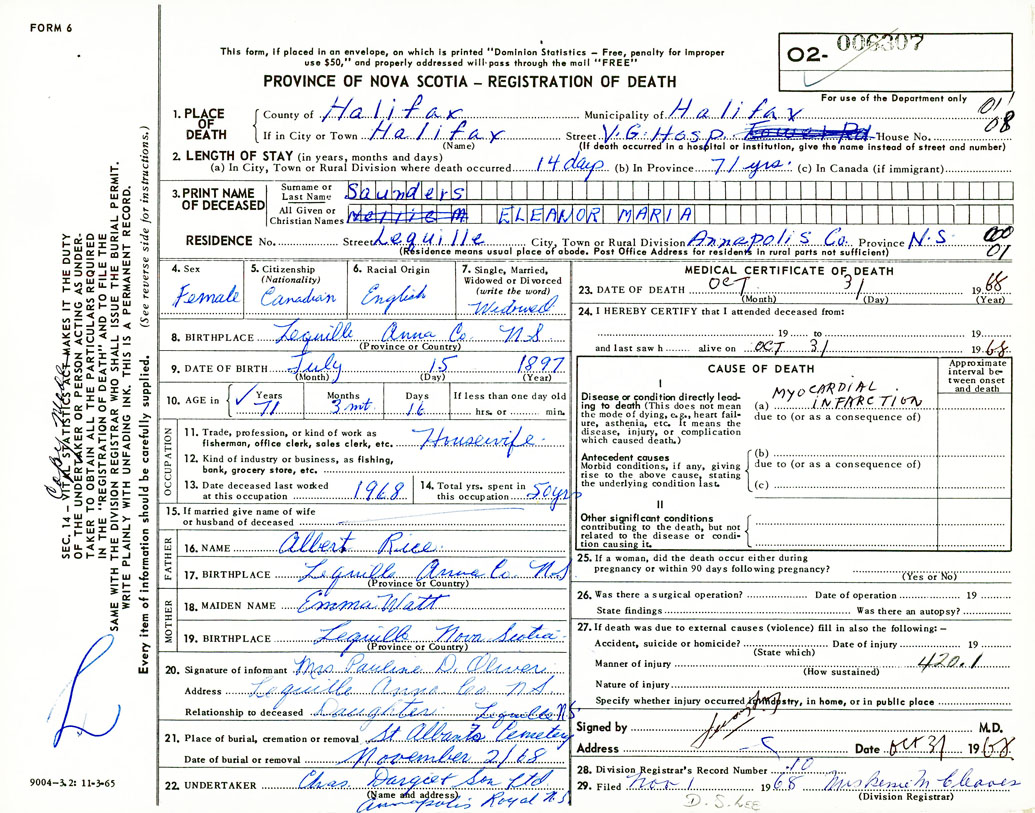 FORM 6
This form, if placed in an envelope, on which is printed "Dominion Statistics – Free, penalty for improper
use $50," and properly addressed will pass through the mail "FREE"
PROVINCE OF NOVA SCOTIA – REGISTRATION OF DEATH
O2- 006307
For use of the Department only
1. PLACE OF DEATH
County of Halifax Municipality of Halifax 01
If in City or Town Halifax Street V.G. Hosp. House No. 08
(Name) (If death occurred in a hospital or institution, give the name instead of street and number)
2. LENGTH OF STAY (in years, months and days)
(a) In City, Town or Rural Division where death occurred 14 days (b) In Province 71 yrs. (c) In Canada (if immigrant)
3. PRINT NAME OF DECEASED
Surname or Last Name Saunders
All Given or Christian Names ELEANOR MARIA
RESIDENCE No. Street Lequille City, Town or Rural Division Annapolis Co. Province N.S. 000
(Residence means usual place of abode. Post Office Address for residents in rural parts not sufficient) 01
4. Sex Female
5. Citizenship (Nationality) Canadian
6. Racial Origin English
7. Single, Married, Widowed or Divorced (write the word) Widowed
8. BIRTHPLACE Lequille Anna Co. N S
(Province or Country)
9. DATE OF BIRTH July 15 1897
(Month) (Day) (Year)
10. AGE in Years 71 Months 3 mt. Days 16 If less than one day old hrs. or min.
OCCUPATION
11. Trade, profession, or kind of work as fisherman, office clerk, sales clerk, etc. Housewife
12. Kind of industry or business, as fishing, bank, grocery store, etc.
13. Date deceased last worked at this occupation 1968
14. Total yrs. spent in this occupation 50 yrs
15. If married give name of wife or husband of deceased
FATHER
16. NAME Albert Rice
17. BIRTHPLACE Lequille Anna Co. N S
(Province or Country)
MOTHER
18. MAIDEN NAME Emma Watt
19. BIRTHPLACE Lequille Nova Scotia
(Province or Country)
20. Signature of informant Mrs. Pauline D. Oliver
Address Lequille Anna Co. N S
Relationship to deceased Daughter Lequille N S
21. Place of burial, cremation or removal St Albans Cemetery
Date of burial or removal November 2/68
22. UNDERTAKER Chas. Dargie & Son Ltd
(Name and address) Annapolis Royal N S
MEDICAL CERTIFICATE OF DEATH
23. DATE OF DEATH OCT 31 1968
(Month) (Day) (Year)
24. I HEREBY CERTIFY that I attended deceased from:
19 to 19
and last saw h alive on OCT 31 1968
CAUSE OF DEATH
Approximate interval between onset and death
I
Disease or condition directly leading to death (This does not mean the mode of dying, e.g., heart failure, asthenia, etc. It means the disease, injury, or complication which caused death.)
(a) MYOCARDIAL INFARCTION
due to (or as a consequence of)
Antecedent causes
Morbid conditions, if any, giving rise to the above cause, stating the underlying condition last.
(b)
due to (or as a consequence of)
(c)
II
Other significant conditions contributing to the death, but not related to the disease or condition causing it.
25. If a woman, did the death occur either during pregnancy or within 90 days following pregnancy?
(Yes or No)
26. Was there a surgical operation? Date of operation 19
State findings Was there an autopsy?
27. If death was due to external causes (violence) fill in also the following: –
Accident, suicide or homicide? Date of injury 19
(State which)
Manner of injury 420.1
(How sustained)
Nature of injury
Specify whether injury occurred in industry, in home, or in public place
Signed by M.D.
Address Date Oct 31 1968
28. Division Registrar's Record Number 10
29. Filed Nov 1 1968
(Division Registrar)
D. S. LEE
SEC. 14 – VITAL STATISTICS ACT MAKES IT THE DUTY
OF THE UNDERTAKER OR PERSON ACTING AS UNDER-
TAKER TO OBTAIN ALL THE PARTICULARS REQUIRED
IN THE "REGISTRATION OF DEATH" AND TO FILE THE
SAME WITH THE DIVISION REGISTRAR WHO SHALL ISSUE THE BURIAL PERMIT.
WRITE PLAINLY WITH UNFADING INK. THIS IS A PERMANENT RECORD.
Every item of information should be carefully supplied. (See reverse side for instructions.)
9004–3.2: 11-3-65